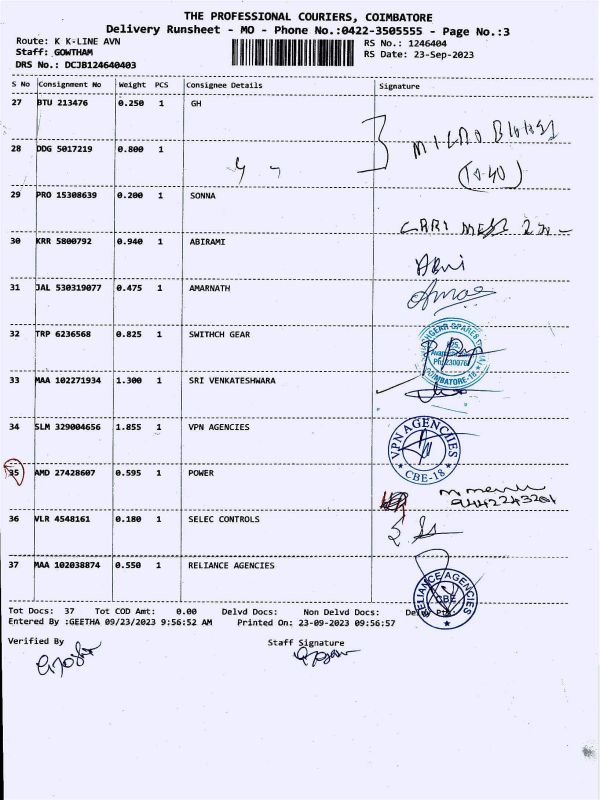 THE PROFESSIONAL COURIERS, COIMBATORE
Delivery Runsheet - MO - Phone No.:0422-3505555 - Page No.:3
Route: K K-LINE AVN RS No.: 1246404
Staff: GOWTHAM RS Date: 23-Sep-2023
DRS No.: DCJB124640403
S No Consignment No Weight PCS Consignee Details Signature
27 BTU 213476 0.250 1 GH
28 DDG 5017219 0.800 1
29 PRO 15308639 0.200 1 SONNA
30 KRR 5800792 0.940 1 ABIRAMI
Abi
31 JAL 530319077 0.475 1 AMARNATH
32 TRP 6236568 0.825 1 SWITHCH GEAR
COIMBATORE-18
33 MAA 102271934 1.300 1 SRI VENKATESHWARA
34 SLM 329004656 1.855 1 VPN AGENCIES
VPN AGENCIES
CBE-18
35 AMD 27428607 0.595 1 POWER
36 VLR 4548161 0.180 1 SELEC CONTROLS
37 MAA 102038874 0.550 1 RELIANCE AGENCIES
RELIANCE AGENCIES
CBE
Tot Docs: 37 Tot COD Amt: 0.00 Delvd Docs: Non Delvd Docs:
Entered By :GEETHA 09/23/2023 9:56:52 AM Printed On: 23-09-2023 09:56:57
Verified By Staff Signature